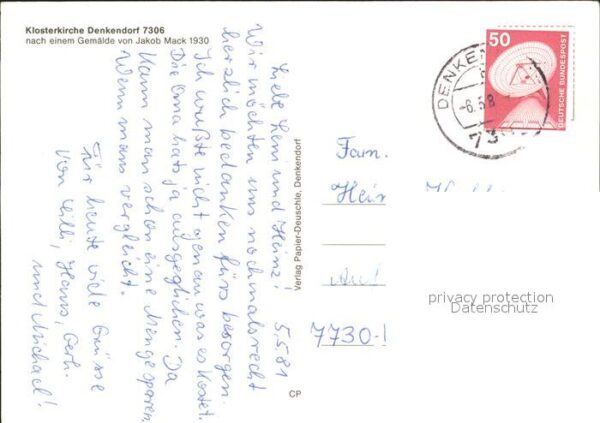 Klosterkirche Denkendorf 7306
nach einem Gemälde von Jakob Mack 1930
5.5.81
Liebe Leni und Heinz!
Wir möchten uns nochmals recht
herzlich bedanken fürs besorgen.
Ich wußte nicht genau was es kostet.
Die Oma hats ja ausgeglichen. Da
kann man schon eine Menge sparen,
wenn mans vergleicht.
Für heute viele Grüsse
von Lilli, Hans, Gerh.
und Michael!
Verlag Papier-Deuschle, Denkendorf
CP
50
DEUTSCHE BUNDESPOST
DENKE
-6.5.8
73
Fam.
Hein
7730-
privacy protection
Datenschutz